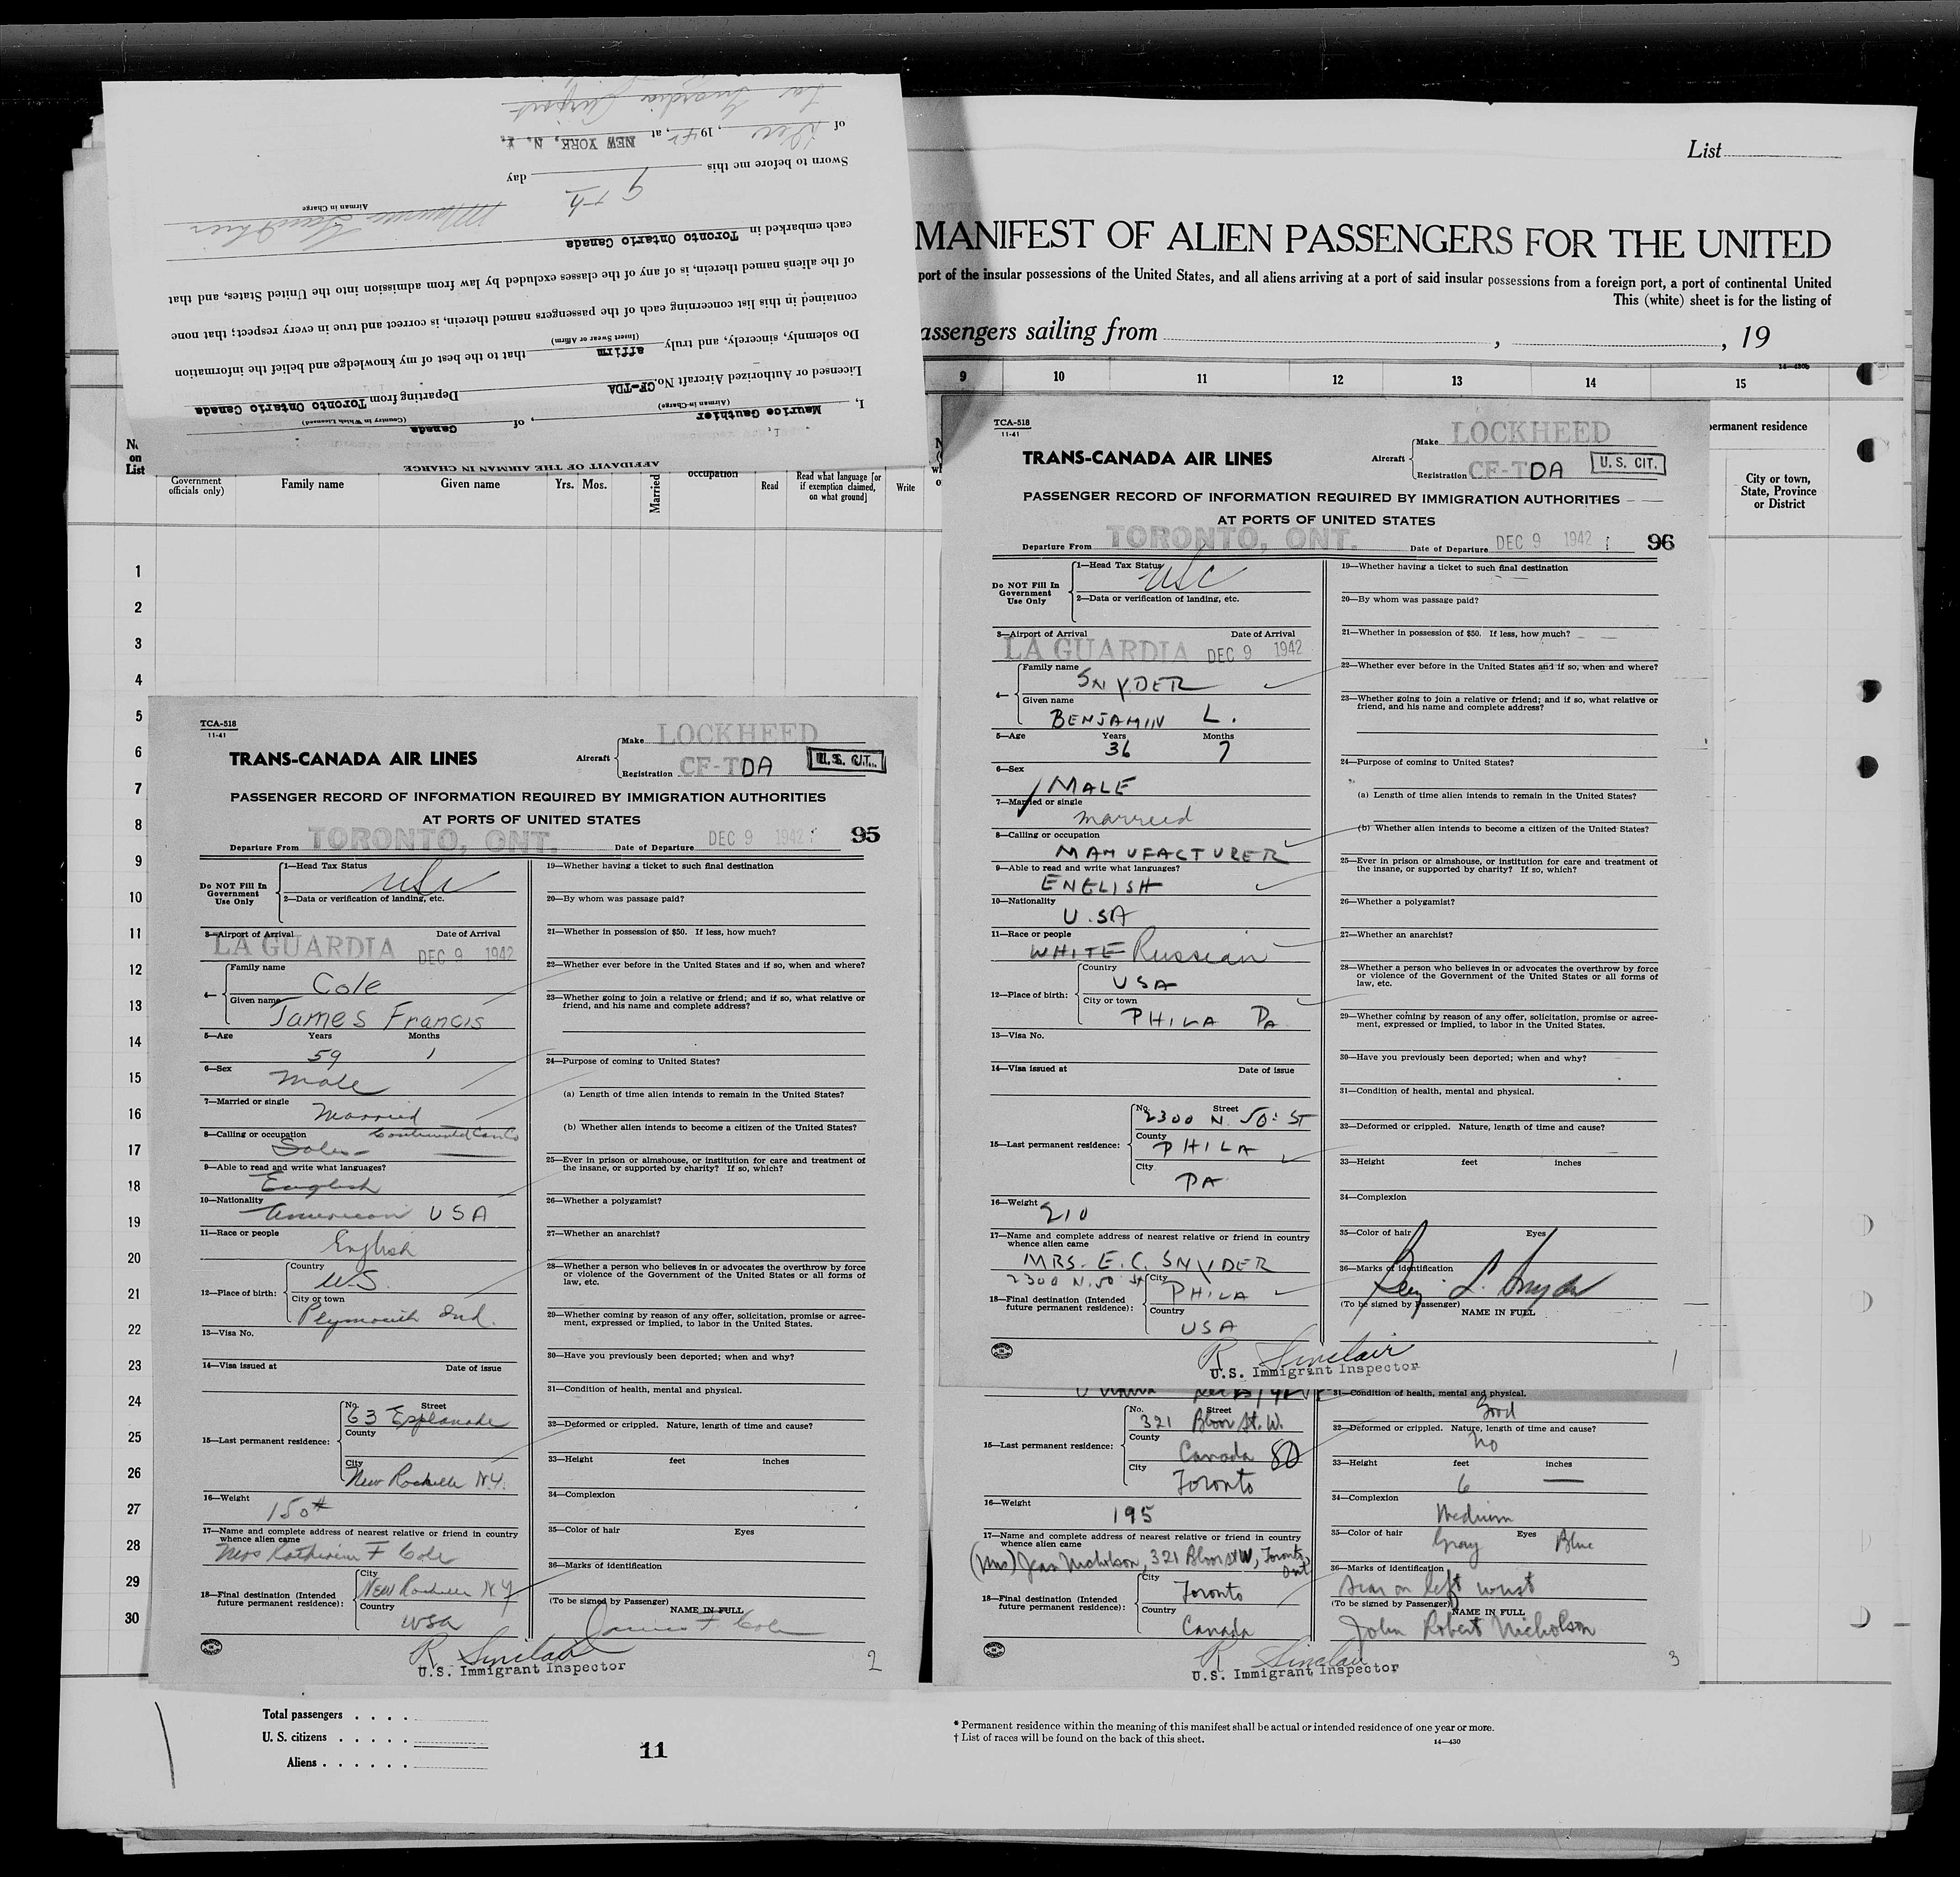 AFFIDAVIT OF THE AIRMAN IN CHARGE
I, Maurice Gauthier, of Canada
(Airman in-Charge) (Country in Which Licensed)
Licensed or Authorized Aircraft No. CF-TDA Departing from Toronto Ontario Canada
Do solemnly, sincerely, and truly affirm that to the best of my knowledge and belief the information
(Insert Swear or Affirm)
contained in this list concerning each of the passengers named therein, is correct and true in every respect; that none
of the aliens named therein, is of any of the classes excluded by law from admission into the United States, and that
each embarked in Toronto Ontario Canada
Maurice Gauthier
Airman in Charge
Sworn to before me this 9th day
of Dec, 1942, at NEW YORK, N. Y.
La Guardia Airport
List
MANIFEST OF ALIEN PASSENGERS FOR THE UNITED
port of the insular possessions of the United States, and all aliens arriving at a port of said insular possessions from a foreign port, a port of continental United
This (white) sheet is for the listing of
assengers sailing from , , 19
14-430b
9 10 11 12 13 14 15
ermanent residence
City or town,
State, Province
or District
on
List
Government
officials only)
Family name
Given name
Yrs. Mos.
Married
occupation
Read
Read what language [or
if exemption claimed,
on what ground]
Write
1
2
3
4
5
6
7
8
9
10
11
12
13
14
15
16
17
18
19
20
21
22
23
24
25
26
27
28
29
30
TCA-518
11-41
TRANS-CANADA AIR LINES
Aircraft
Make LOCKHEED
Registration CF-TDA
U.S. CIT.
PASSENGER RECORD OF INFORMATION REQUIRED BY IMMIGRATION AUTHORITIES
AT PORTS OF UNITED STATES
Departure From TORONTO, ONT. Date of Departure DEC 9 1942 95
Do NOT Fill In
Government
Use Only
1—Head Tax Status
USC
2—Data or verification of landing, etc.
3—Airport of Arrival Date of Arrival
LA GUARDIA DEC 9 1942
4—
Family name
Cole
Given name
James Francis
5—Age Years Months
59 1
6—Sex
Male
7—Married or single
Married
8—Calling or occupation Continental Can Co
Sales
9—Able to read and write what languages?
English
10—Nationality
American USA
11—Race or people
English
12—Place of birth:
Country
U.S.
City or town
Plymouth Ind.
13—Visa No.
14—Visa issued at Date of issue
15—Last permanent residence:
No. Street
63 Esplanade
County
City
New Rochelle N.Y.
16—Weight
150#
17—Name and complete address of nearest relative or friend in country
whence alien came
Mrs Katherine F Cole
18—Final destination (Intended
future permanent residence):
City
New Rochelle NY
Country
USA
19—Whether having a ticket to such final destination
20—By whom was passage paid?
21—Whether in possession of $50. If less, how much?
22—Whether ever before in the United States and if so, when and where?
23—Whether going to join a relative or friend; and if so, what relative or
friend, and his name and complete address?
24—Purpose of coming to United States?
(a) Length of time alien intends to remain in the United States?
(b) Whether alien intends to become a citizen of the United States?
25—Ever in prison or almshouse, or institution for care and treatment of
the insane, or supported by charity? If so, which?
26—Whether a polygamist?
27—Whether an anarchist?
28—Whether a person who believes in or advocates the overthrow by force
or violence of the Government of the United States or all forms of
law, etc.
29—Whether coming by reason of any offer, solicitation, promise or agree-
ment, expressed or implied, to labor in the United States.
30—Have you previously been deported; when and why?
31—Condition of health, mental and physical.
32—Deformed or crippled. Nature, length of time and cause?
33—Height feet inches
34—Complexion
35—Color of hair Eyes
36—Marks of identification
(To be signed by Passenger)
NAME IN FULL
James F. Cole
R Sinclair
U.S. Immigrant Inspector
2
TCA-518
11-41
TRANS-CANADA AIR LINES
Aircraft
Make LOCKHEED
Registration CF-TDA
U.S. CIT.
PASSENGER RECORD OF INFORMATION REQUIRED BY IMMIGRATION AUTHORITIES
AT PORTS OF UNITED STATES
Departure From TORONTO, ONT. Date of Departure DEC 9 1942 96
Do NOT Fill In
Government
Use Only
1—Head Tax Status
USC
2—Data or verification of landing, etc.
3—Airport of Arrival Date of Arrival
LA GUARDIA DEC 9 1942
4—
Family name
SNYDER
Given name
BENJAMIN L.
5—Age Years Months
36 7
6—Sex
MALE
7—Married or single
Married
8—Calling or occupation
MANUFACTURER
9—Able to read and write what languages?
ENGLISH
10—Nationality
U.SA
11—Race or people
WHITE Russian
12—Place of birth:
Country
USA
City or town
PHILA PA.
13—Visa No.
14—Visa issued at Date of issue
15—Last permanent residence:
No. Street
2300 N. 50: ST
County
PHILA
City
PA
16—Weight
210
17—Name and complete address of nearest relative or friend in country
whence alien came
MRS. E. C. SNYDER
2300 N. 50 St
18—Final destination (Intended
future permanent residence):
City
PHILA
Country
USA
19—Whether having a ticket to such final destination
20—By whom was passage paid?
21—Whether in possession of $50. If less, how much?
22—Whether ever before in the United States and if so, when and where?
23—Whether going to join a relative or friend; and if so, what relative or
friend, and his name and complete address?
24—Purpose of coming to United States?
(a) Length of time alien intends to remain in the United States?
(b) Whether alien intends to become a citizen of the United States?
25—Ever in prison or almshouse, or institution for care and treatment of
the insane, or supported by charity? If so, which?
26—Whether a polygamist?
27—Whether an anarchist?
28—Whether a person who believes in or advocates the overthrow by force
or violence of the Government of the United States or all forms of
law, etc.
29—Whether coming by reason of any offer, solicitation, promise or agree-
ment, expressed or implied, to labor in the United States.
30—Have you previously been deported; when and why?
31—Condition of health, mental and physical.
32—Deformed or crippled. Nature, length of time and cause?
33—Height feet inches
34—Complexion
35—Color of hair Eyes
36—Marks of identification
Benj L. Snyder
(To be signed by Passenger)
NAME IN FULL
R Sinclair
U.S. Immigrant Inspector
1
15—Last permanent residence:
No. Street
321 Bloor St. W.
County
Canada 80
City
Toronto
16—Weight
195
17—Name and complete address of nearest relative or friend in country
whence alien came
(Mrs) Jean Nicholson, 321 Bloor St W, Toronto, Ont
18—Final destination (Intended
future permanent residence):
City
Toronto
Country
Canada
31—Condition of health, mental and physical.
Good
32—Deformed or crippled. Nature, length of time and cause?
No
33—Height feet inches
6 —
34—Complexion
Medium
35—Color of hair Gray Eyes Blue
36—Marks of identification
Scar on left wrist
(To be signed by Passenger)
NAME IN FULL
John Robert Nicholson
R Sinclair
U.S. Immigrant Inspector
3
Total passengers . . . .
U. S. citizens . . . . .
Aliens . . . . . .
11
* Permanent residence within the meaning of this manifest shall be actual or intended residence of one year or more.
† List of races will be found on the back of this sheet.
14—430